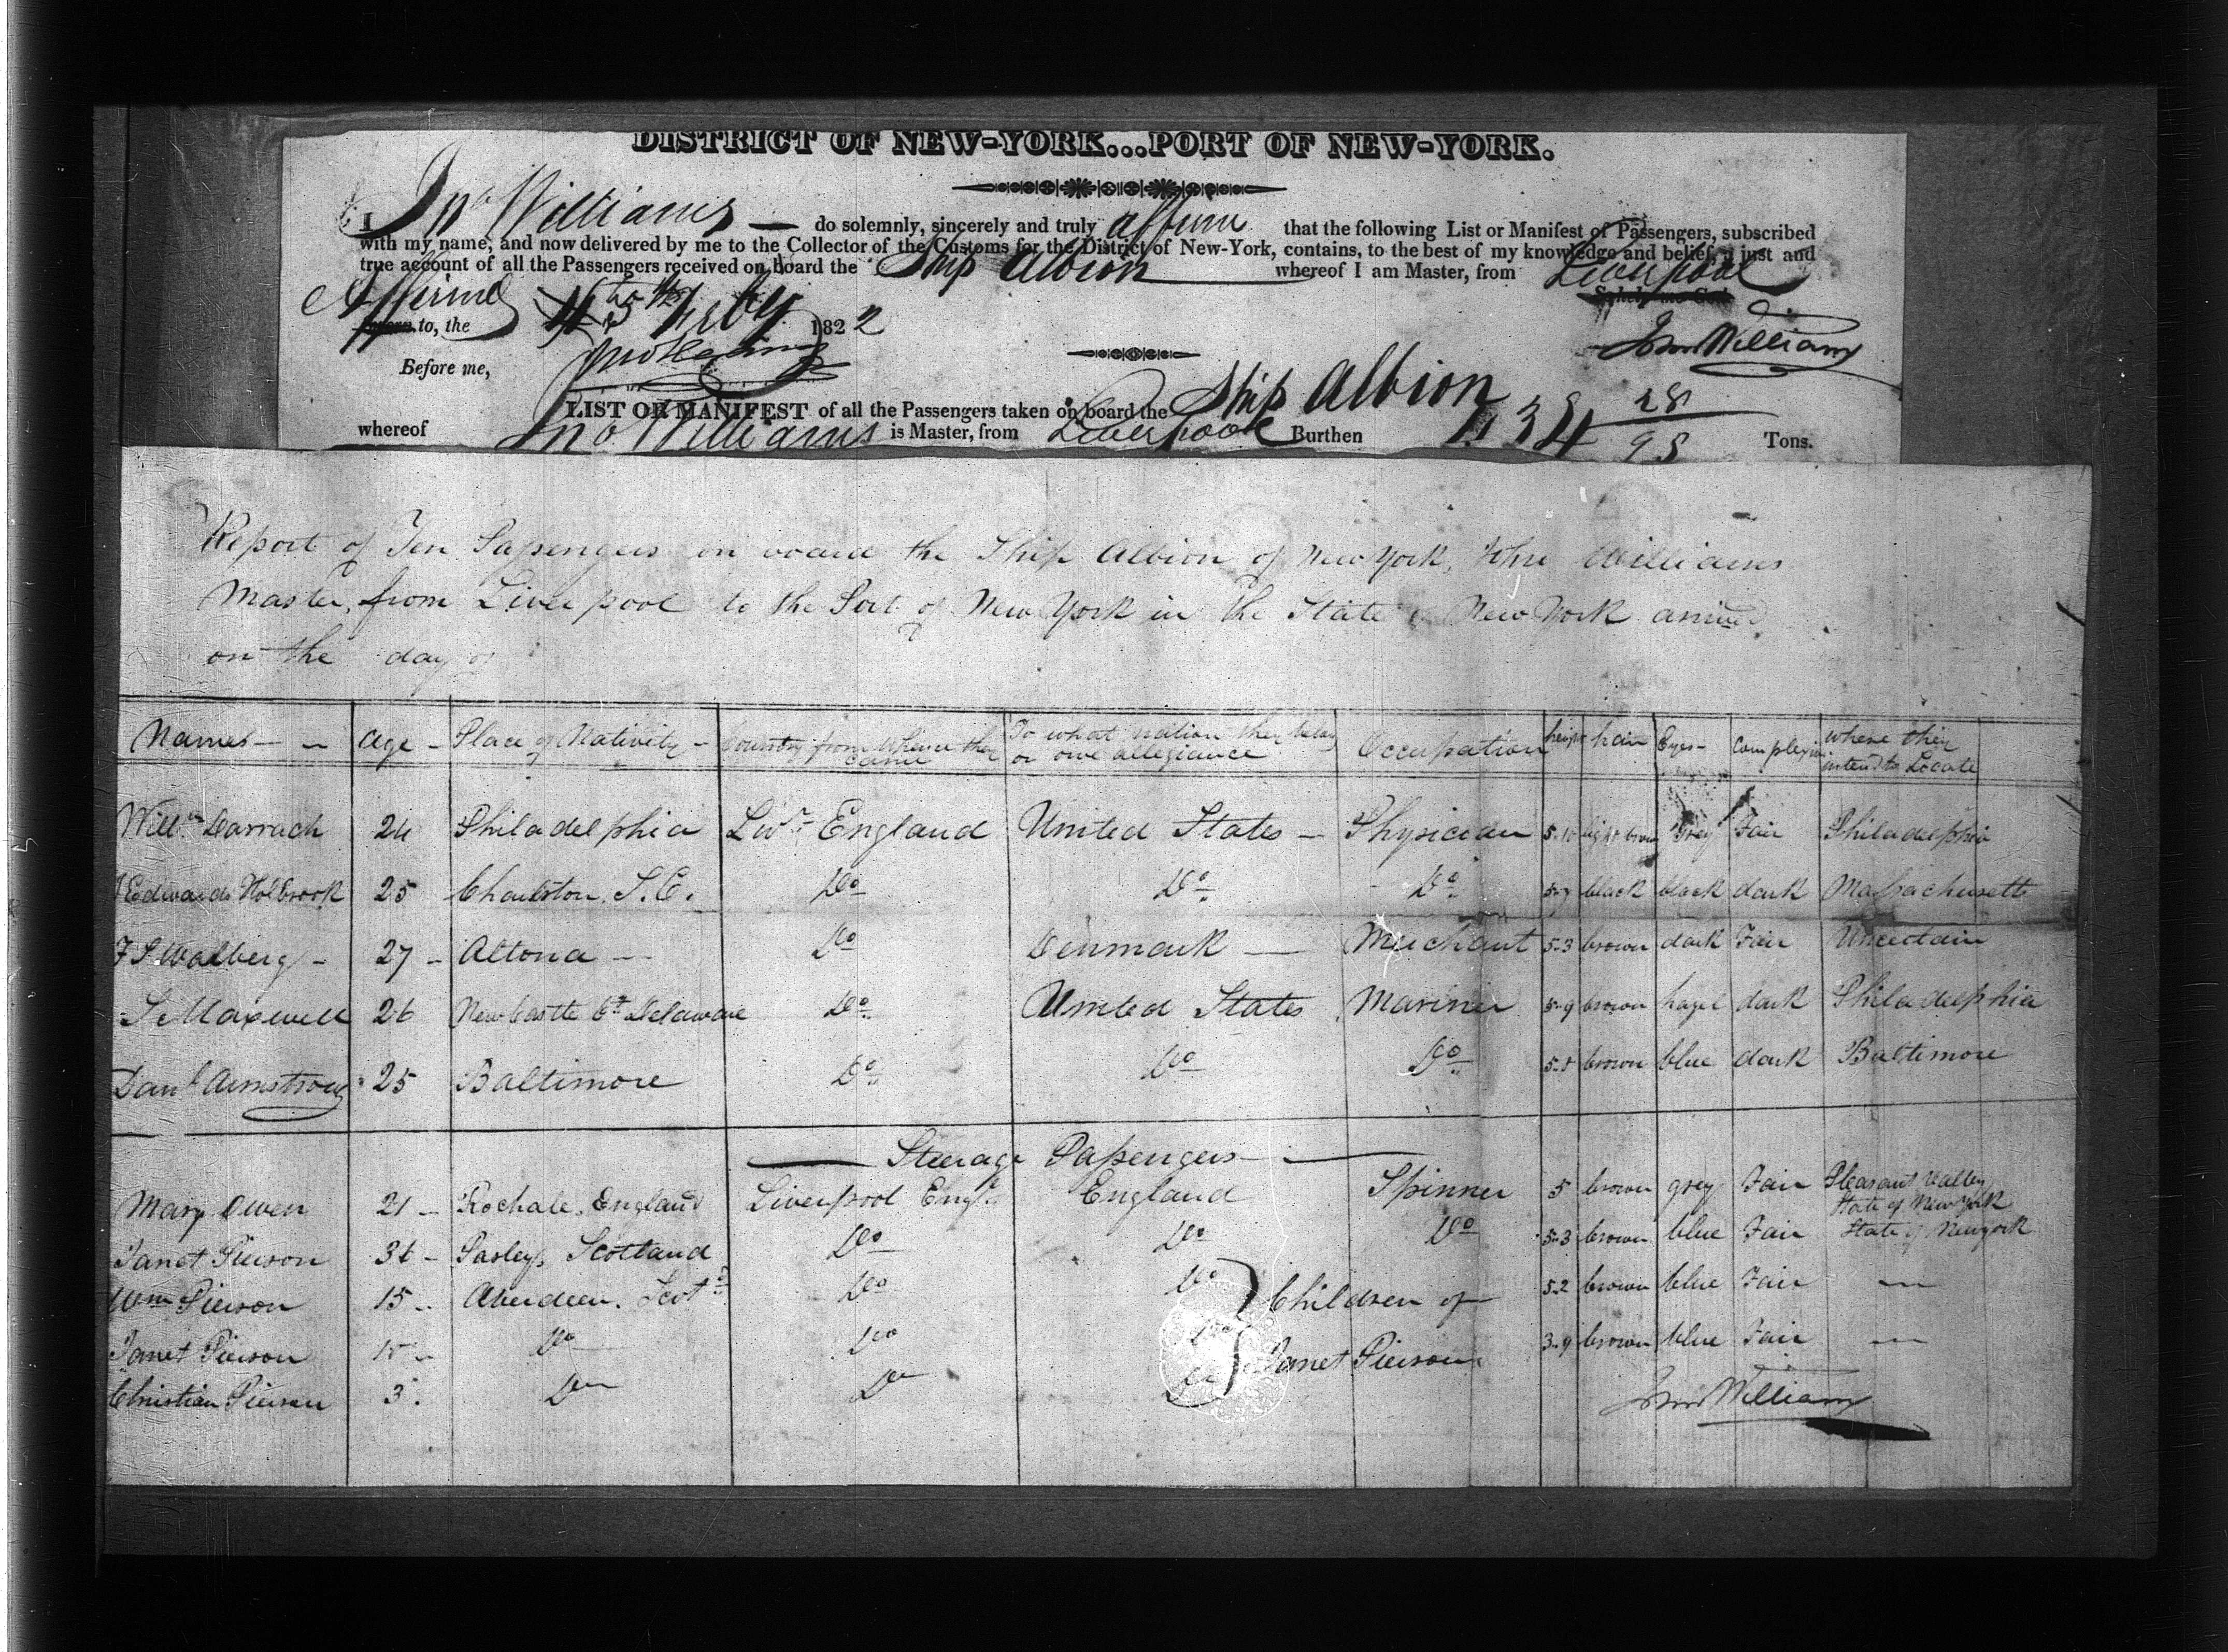 DISTRICT OF NEW-YORK...PORT OF NEW-YORK.
I Jno Williams — do solemnly, sincerely and truly affirm that the following List or Manifest of Passengers, subscribed
with my name, and now delivered by me to the Collector of the Customs for the District of New-York, contains, to the best of my knowledge and belief, a just and
true account of all the Passengers received on board the Ship Albion whereof I am Master, from Liverpool
Affirmed So help me God
Sworn to, the Feby 1822
John Williams
Before me,
LIST OR MANIFEST of all the Passengers taken on board the Ship Albion
whereof Jno Williams is Master, from Liverpool Burthen 434 28/95 Tons.
Report of Ten Passengers on board the Ship Albion of New York, John Williams
Master, from Liverpool to the Port of New York in the State of New York arrived
on the day of
Names Age Place of Nativity Country from whence they came To what nation they belong or owe allegiance Occupation height hair Eyes Complexion where they intend to Locate
Willm Darrach 24 Philadelphia Livr England United States Physician 5.10 light brown Grey Fair Philadelphia
Edwards Holbrook 25 Charlston, S.C. Do Do Do 5.7 black black dark Massachusetts
F S Walberg 27 Altona Do Denmark Merchant 5.3 brown dark Fair Uncertain
S Maxwell 26 New Castle Ct Delaware Do United States Mariner 5.9 brown hazel dark Philadelphia
Danl Armstrong 25 Baltimore Do Do Do 5.8 brown blue dark Baltimore
Steerage Passengers
Mary Owen 21 Rochale, England Liverpool Engd England Spinner 5 brown grey Fair Pleasant Valley State of New York
Janet Pierson 36 Pasley, Scotland Do Do Do 5.3 brown blue Fair State of New york
Wm Pierson 15 Aberdeen, Scotd Do Do Children of 5.2 brown blue Fair —
Janet Pierson Do Do Do Janet Pierson 3.9 brown blue Fair —
Christian Pierson 3 Do Do Do
John Williams